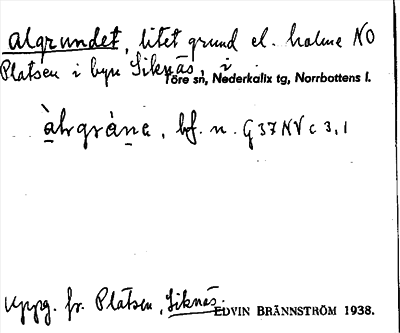 Algrundet, litet grund el. holme NO
Platsen i byn Siknäs, i
Töre sn, Nederkalix tg, Norrbottens l.
bf. n. G 37 NV c 3, 1
Uppg. fr. Platsen, Siknäs.
EDVIN BRÄNNSTRÖM 1938.